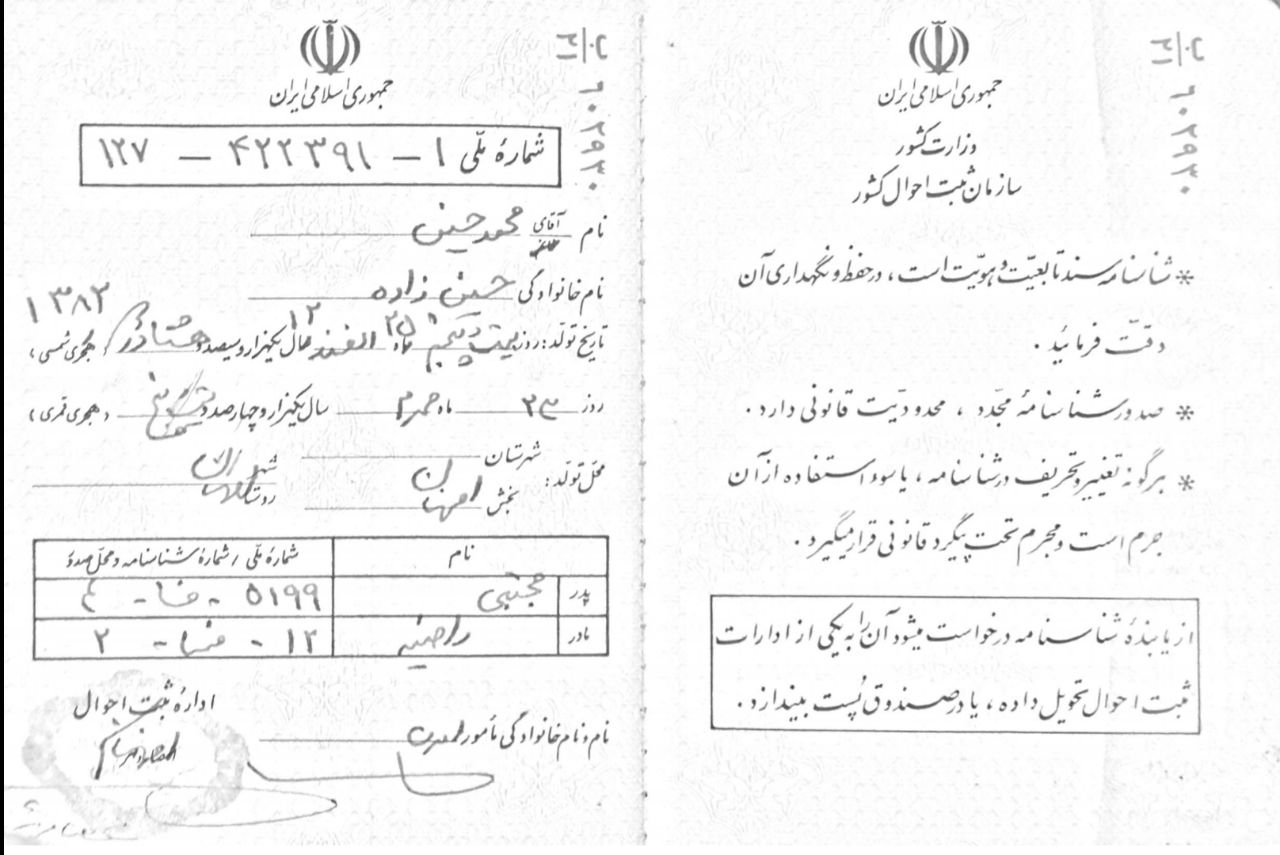 جمهوری اسلامی ایران
وزارت کشور
سازمان ثبت احوال کشور
* شناسنامه سند تابعیّت و هویّت است ، در حفظ و نگهداری آن
دقّت فرمائید .
* صدور شناسنامهٔ مجدّد ، محدودیّت قانونی دارد .
* هرگونه تغییر و تحریف در شناسنامه ، یا سوء استفاده از آن
جرم است و مجرم تحت پیگرد قانونی قرار میگیرد .
از یابندهٔ شناسنامه درخواست میشود آن را به یکی از ادارات
ثبت احوال تحویل داده ، یا در صندوق پُست بیندازد .
۶۰۲۹۳۰
جمهوری اسلامی ایران
شمارهٔ ملّی ۱ – ۴۲۲۳۹۱ – ۱۲۷
نام آقای محمدحسین
نام خانوادگی حسین زاده
۱۳۸۲
تاریخ تولّد : روز بیست و پنجم ۲۵ ماه اسفند ۱۲ سال یکهزار و سیصد و هشتاد و ( هجری شمسی )
روز ۲۳ ماه محرم سال یکهزار و چهارصد و ( هجری قمری )
محلّ تولّد : شهرستان
بخش اصفهان شهر
روستا
نام شمارهٔ ملّی / شمارهٔ شناسنامه و محلّ صدور
پدر مجتبی ۵۱۹۹ -
مادر راضیه ۱۲ - ۲
نام و نام خانوادگی مأمور
ادارهٔ ثبت احوال
۶۰۲۹۳۰